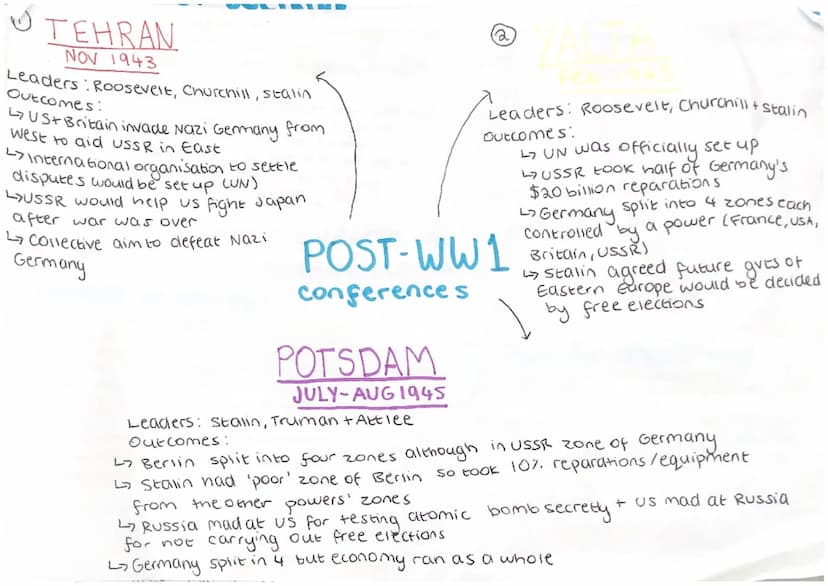 1)
TEHRAN
NOV 1943
Leaders: Roosevelt, Churchill, Stalin
Outcomes:
↳ US + Britain invade Nazi Germany from
West to aid USSR in East
↳ International organisation to settle
disputes would be set up (UN)
↳ USSR would help US fight Japan
after war was over
↳ Collective aim to defeat Nazi
Germany
2
YALTA
FEB 1945
Leaders: Roosevelt, Churchill + Stalin
Outcomes:
↳ UN was officially set up
↳ USSR took half of Germany's
$20 billion reparations
↳ Germany split into 4 zones each
controlled by a power (France, USA,
Britain, USSR)
↳ Stalin agreed future gvts of
Eastern Europe would be decided
by free elections
POST-WW1
conferences
POTSDAM
JULY-AUG 1945
Leaders: Stalin, Truman + Attlee
Outcomes:
↳ Berlin split into four zones although in USSR zone of Germany
↳ Stalin had 'poor' zone of Berlin so took 10% reparations/equipment
from the other powers' zones
↳ Russia mad at US for testing atomic bomb secretly + US mad at Russia
for not carrying out free elections
↳ Germany split in 4 but economy ran as a whole